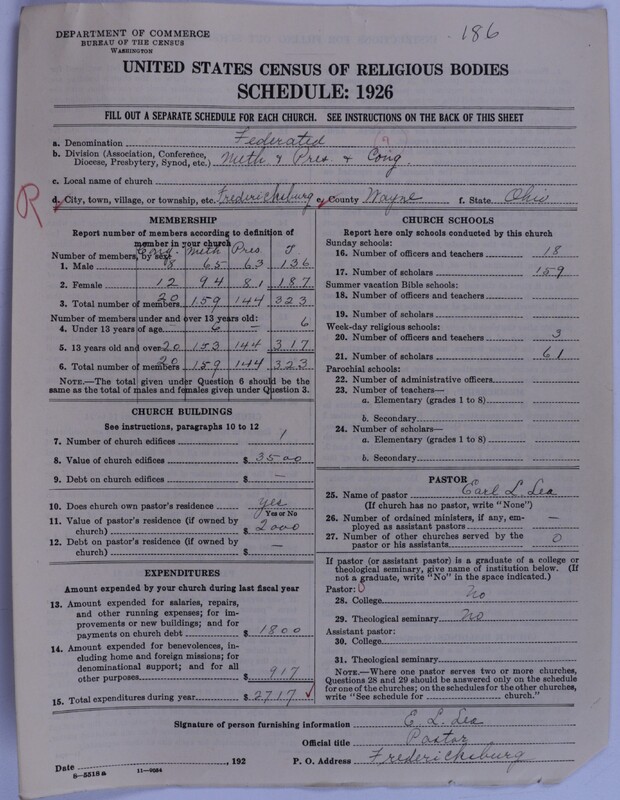 DEPARTMENT OF COMMERCE
BUREAU OF THE CENSUS
WASHINGTON
186
UNITED STATES CENSUS OF RELIGIOUS BODIES
SCHEDULE: 1926
FILL OUT A SEPARATE SCHEDULE FOR EACH CHURCH. SEE INSTRUCTIONS ON THE BACK OF THIS SHEET
a. Denomination Federated
b. Division (Association, Conference, Diocese, Presbytery, Synod, etc.) Meth. & Pres. & Cong.
c. Local name of church
R
d. City, town, village, or township, etc. Fredericksburg e. County Wayne f. State Ohio
MEMBERSHIP
Report number of members according to definition of
member in your church
Number of members, by sex: Cong. Meth Pres. T.
1. Male 8 65 63 136
2. Female 12 94 81 187
3. Total number of members 20 159 144 323
Number of members under and over 13 years old:
4. Under 13 years of age — 6 — 6
5. 13 years old and over 20 153 144 317
6. Total number of members 20 159 144 323
NOTE.—The total given under Question 6 should be
same as the total of males and females given under Question 3.
CHURCH BUILDINGS
See instructions, paragraphs 10 to 12
7. Number of church edifices 1
8. Value of church edifices $ 3500
9. Debt on church edifices $ —
10. Does church own pastor's residence yes
Yes or No
11. Value of pastor's residence (if owned by
church) $ 2000
12. Debt on pastor's residence (if owned by
church) $ —
EXPENDITURES
Amount expended by your church during last fiscal year
13. Amount expended for salaries, repairs,
and other running expenses; for im-
provements or new buildings; and for
payments on church debt $ 1800
14. Amount expended for benevolences, in-
cluding home and foreign missions; for
denominational support; and for all
other purposes $ 917
15. Total expenditures during year $ 2717
CHURCH SCHOOLS
Report here only schools conducted by this church
Sunday schools:
16. Number of officers and teachers 18
17. Number of scholars 159
Summer vacation Bible schools:
18. Number of officers and teachers
19. Number of scholars
Week-day religious schools:
20. Number of officers and teachers 3
21. Number of scholars 61
Parochial schools:
22. Number of administrative officers
23. Number of teachers—
a. Elementary (grades 1 to 8)
b. Secondary
24. Number of scholars—
a. Elementary (grades 1 to 8)
b. Secondary
PASTOR
25. Name of pastor Earl L. Lea
(If church has no pastor, write "None")
26. Number of ordained ministers, if any, em-
ployed as assistant pastors —
27. Number of other churches served by the
pastor or his assistants 0
If pastor (or assistant pastor) is a graduate of a college or
theological seminary, give name of institution below. (If
not a graduate, write "No" in the space indicated.)
Pastor:
28. College No
29. Theological seminary No
Assistant pastor:
30. College
31. Theological seminary
NOTE.—Where one pastor serves two or more churches,
Questions 28 and 29 should be answered only on the schedule
for one of the churches; on the schedules for the other churches,
write "See schedule for church."
Signature of person furnishing information E. L. Lea
Official title Pastor
Date , 192 P. O. Address Fredericksburg
8—5518 a 11—9084